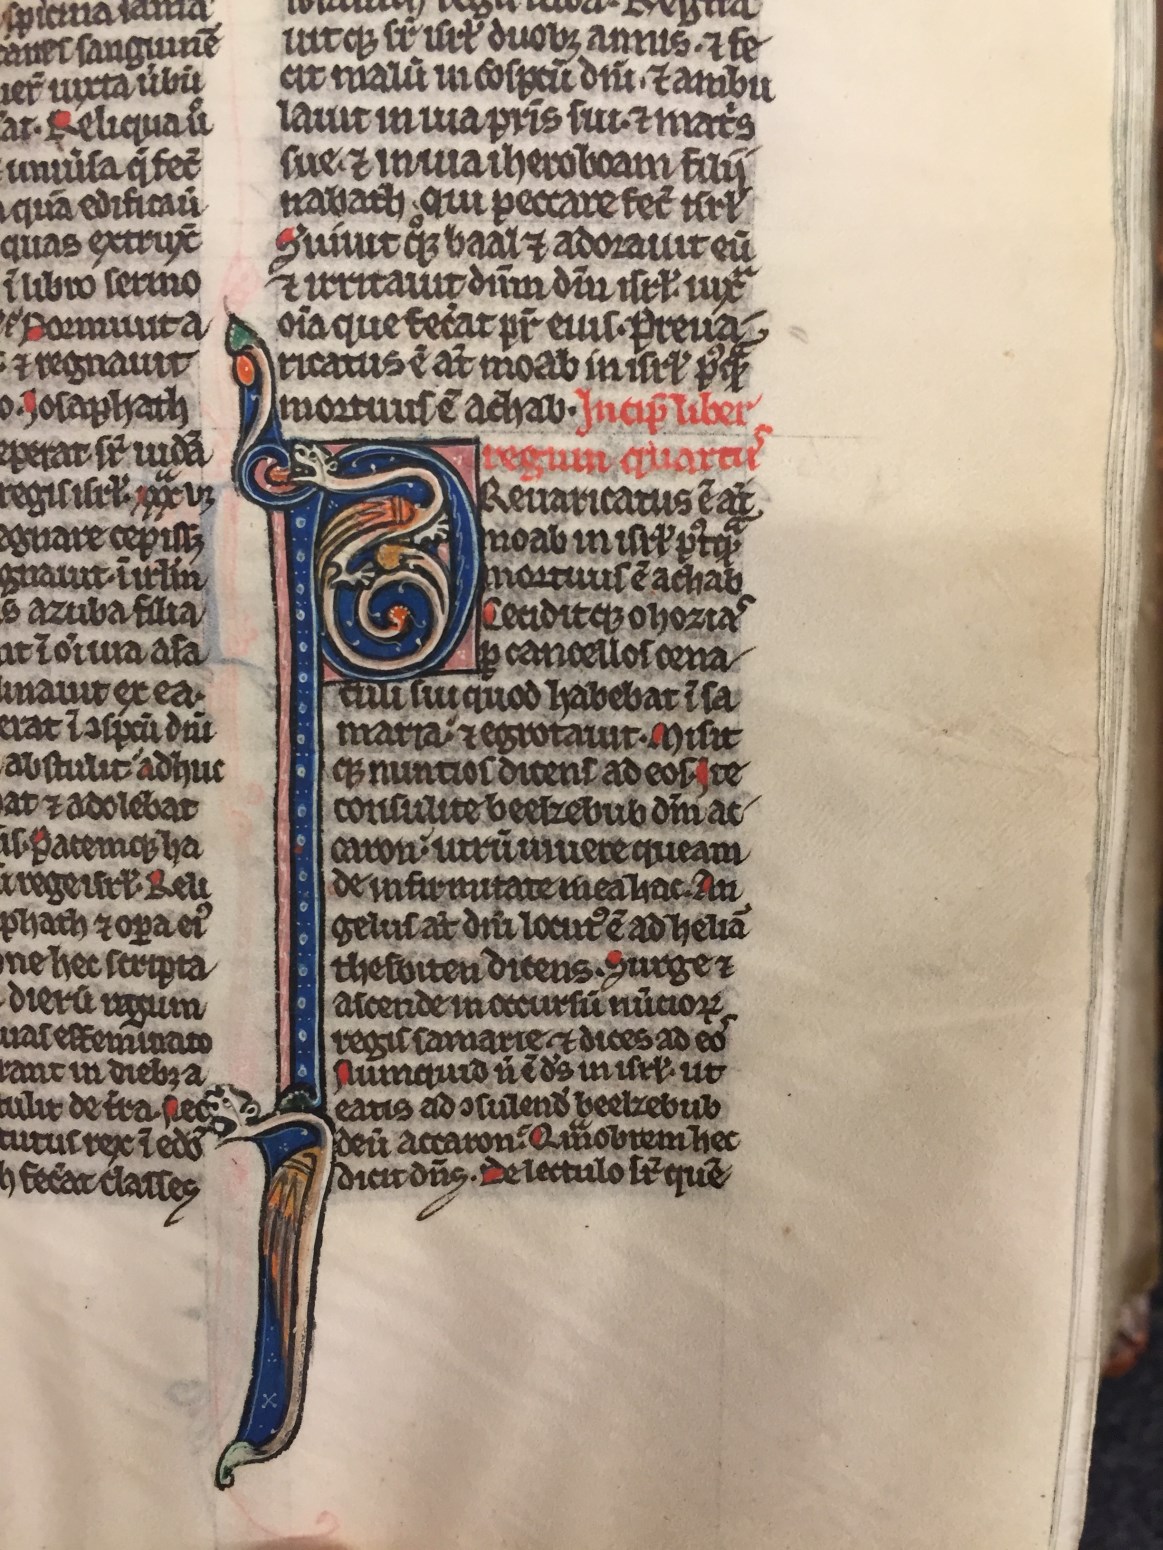 spicina iama
canes sanguinē
uer̄ iuxta ūbū
at. Reliqua ū
uniūsa q̄ fec̄
quā edificaū
quas extruxͭ
ī libro sermo
Dormiuit a
⁊ regnauit
o. Josaphath
eperat sr̄ iudā
regis isrł.
egnare cepiss;
gnauit ī irłm
s azuba filia
ut ī oī uia asa
linauit ex ea.
erat ī ɔspc̄tu dn̄i
abstulit adhuc
at ⁊ adolebat
Pacemq; ha
rege isrł. Reli
phath ⁊ opa ei᾽
ne hec scripta
dierū regum
uas effeminato
rant in dieb; a
tulit de t̄ra. Nec
tutus rex ī edō
h fec̄at classes
Regna
uitq; sr̄ isrł duob; annis. ⁊ fe
cit malū in ɔ̄spc̄tu dn̄i. ⁊ ambu
lauit in uia pr̄is sui. ⁊ mat᷒s
sue. ⁊ in uia iheroboam filij
nabath. qui peccare fec̄ isrł
Suiuit q̊q; baal ⁊ adorauit eū
⁊ irritauit dn̄m dm̄ isrł. iuxᵃ
oīa que fec̄at pr̄ eius. Preua
ricatus ē at̄ moab in isrł p᾽qᵃ
mortuus ē achab. Incip̄ liber
regum quartᵘ᷒
Reuaricatus ē at̄
moab in isrł p᾽tqᵃ
mortuus ē achab
Ceciditq; ohozia᷒
ꝑ cancellos cena
culi sui quod habebat ī sa
maria. ⁊ egrotauit. Misit
q; nuntios dicens ad eos. Ite
consulite beelzebub dm̄ ac
caron. utrū uiuere queam
de infirmitate mea hac. An
gelus at̄ dn̄i locut᾽ ē ad heliā
thesbiten dicens. Surge ⁊
ascende in occursū nūcioꝝ
regis samarie. ⁊ dices ad eo᷒
Numquid n̄ ē ds̄ in isrł. ut
eatis ad ɔsulend̄ beelzebub
deū accaron. Qᵃmobrem hec
dicit dn̄s. De lectulo sr̄ quē